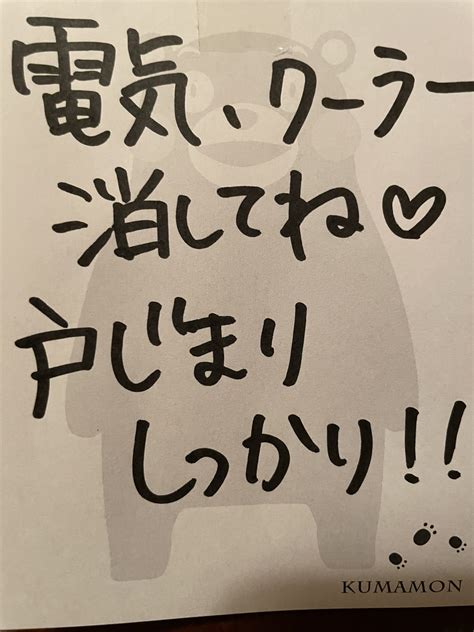 電気、クーラー
消してね♡
戸じまり
しっかり!!
KUMAMON